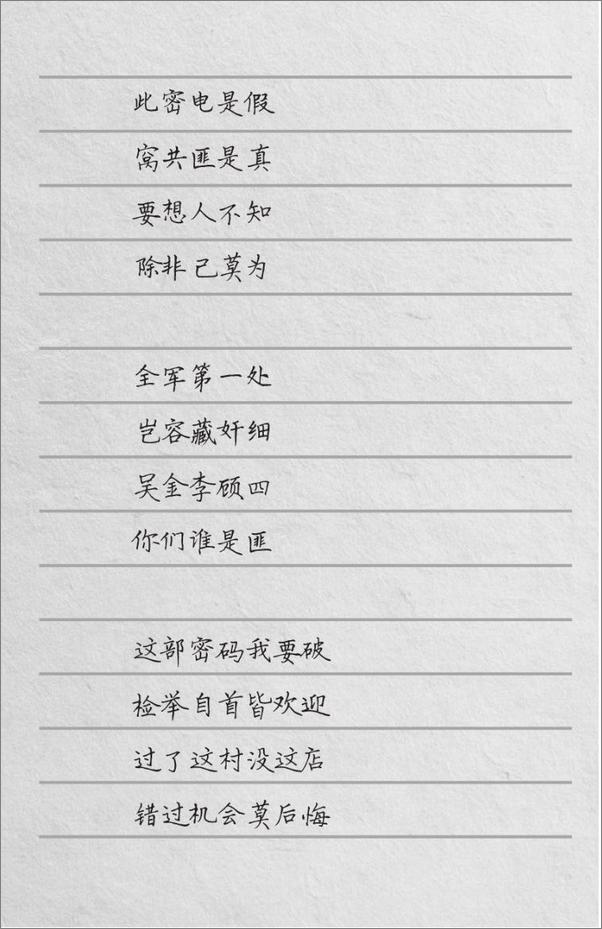 此密电是假
窝共匪是真
要想人不知
除非己莫为
全军第一处
岂容藏奸细
吴金李顾四
你们谁是匪
这部密码我要破
检举自首皆欢迎
过了这村没这店
错过机会莫后悔